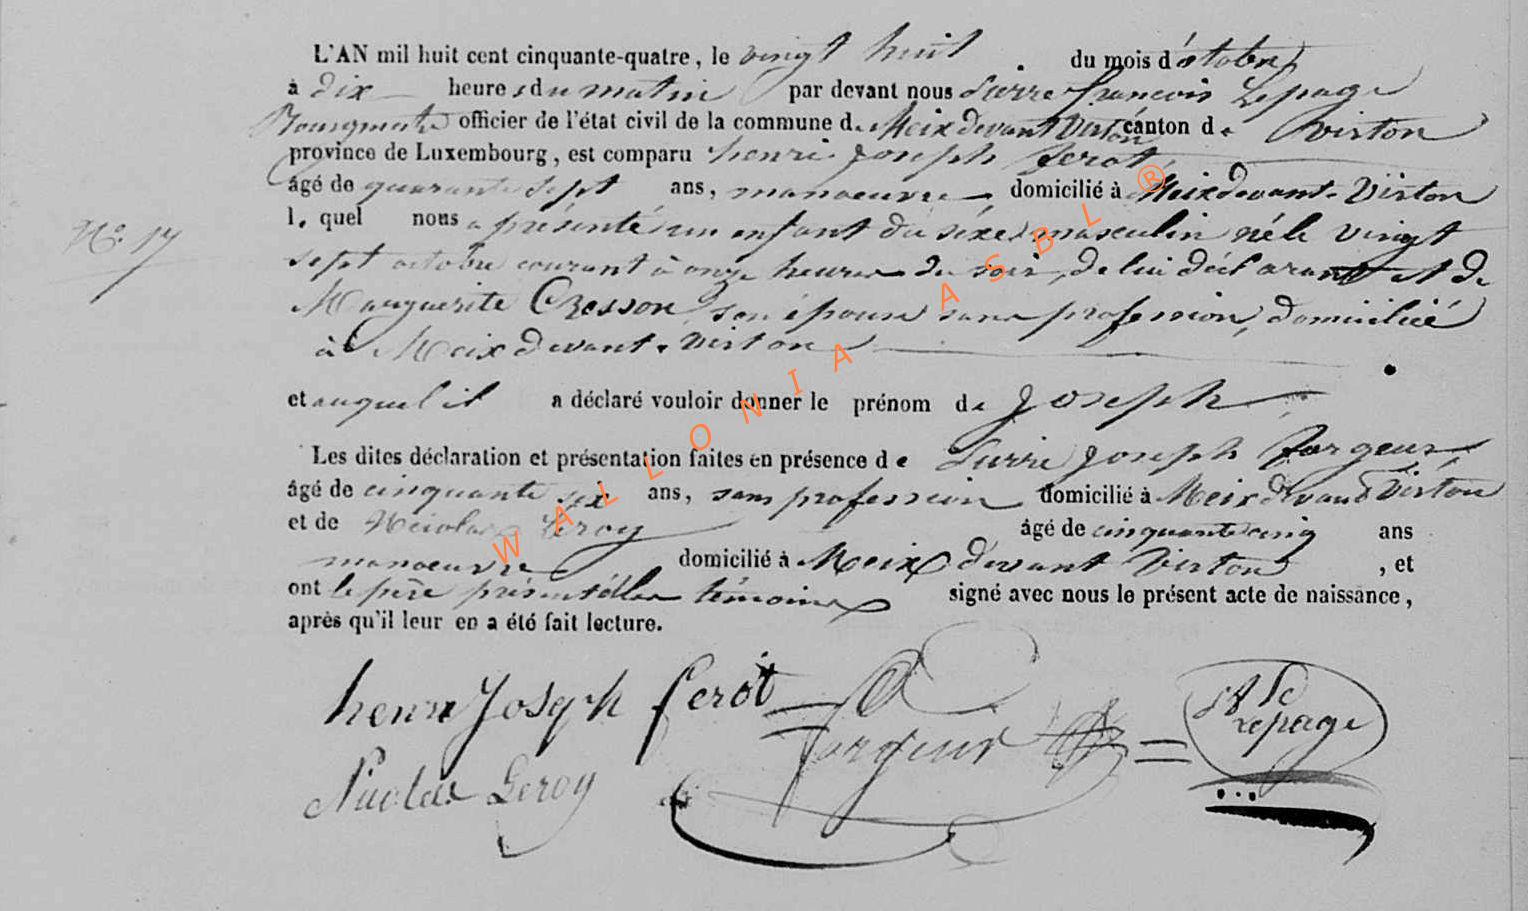 L'AN mil huit cent cinquante-quatre, le vingt huit du mois d'octobre
à dix heures du matin par devant nous Pierre françois Lepage
Bourgmestre officier de l'état civil de la commune de Meix devant Virton canton de Virton
province de Luxembourg, est comparu henri Joseph ferot,
âgé de quarante sept ans, manoeuvre, domicilié à Meix devant-Virton
lequel nous a présenté un enfant du séxe masculin né le vingt
N° 17
sept octobre courant à onze heures du soir, de lui déclarant et de
Marguerite Cresson son épouse sans profession, domicilié
à Meix devant-Virton
et auquel il a déclaré vouloir donner le prénom de Joseph
Les dites déclaration et présentation faites en présence de Pierre Joseph forgeur,
âgé de cinquante six ans, sans profession domicilié à Meix devant Virton
et de Nicolas Leroy âgé de cinquante cinq ans
manoeuvre domicilié à Meix devant Virton, et
ont le père présent et les témoins signé avec nous le présent acte de naissance,
après qu'il leur en a été fait lecture.
henri Joseph ferot
forgeur
Lepage
Nicolas Leroy
WALLONIA ASBL ®